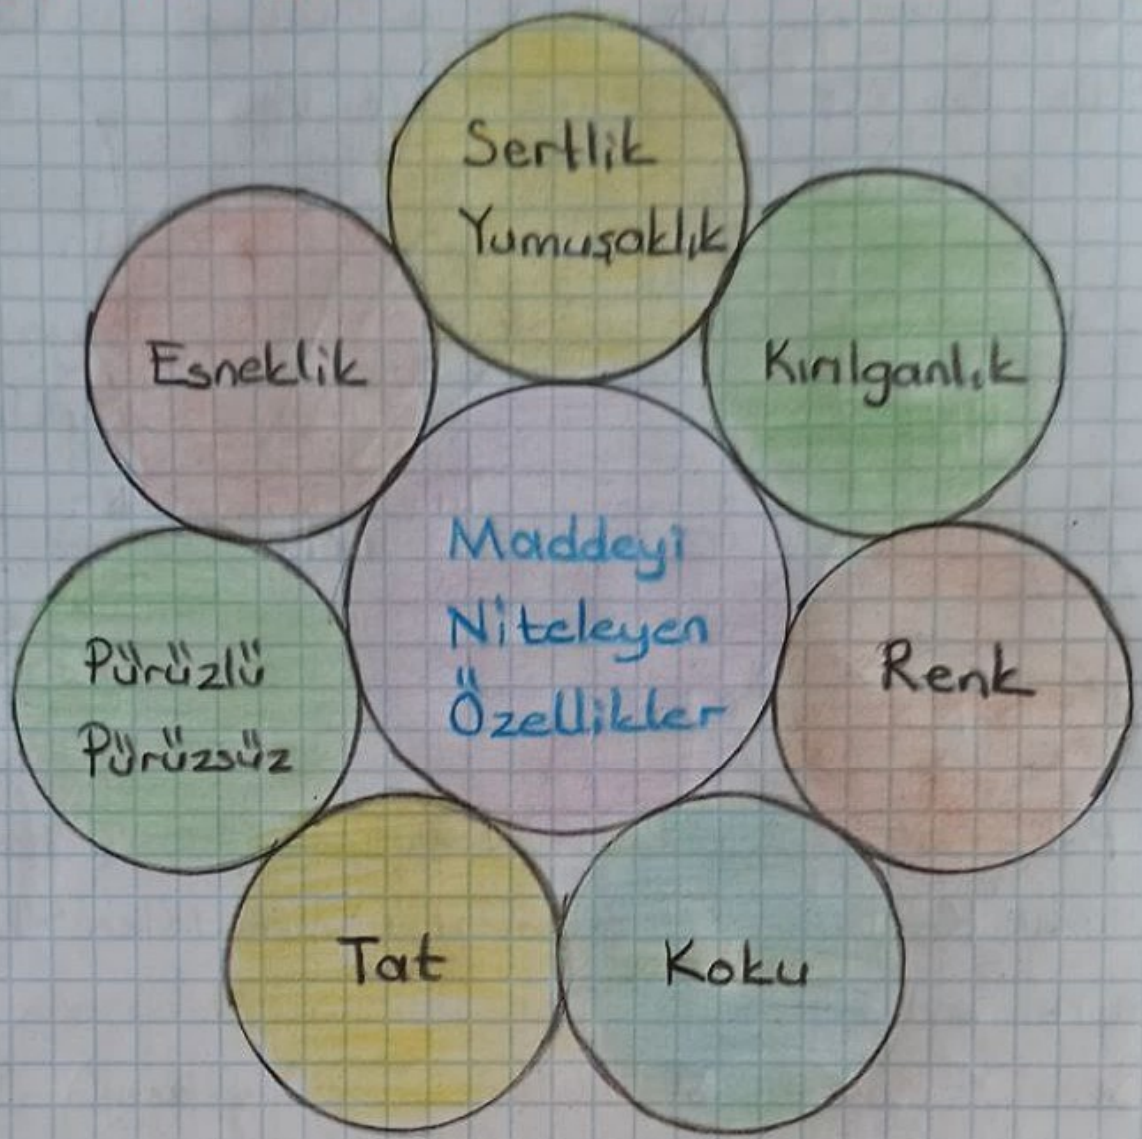 Sertlik
Yumuşaklık
Esneklik
Kırılganlık
Maddeyi
Niteleyen
Özellikler
Pürüzlü
Pürüzsüz
Renk
Tat
Koku